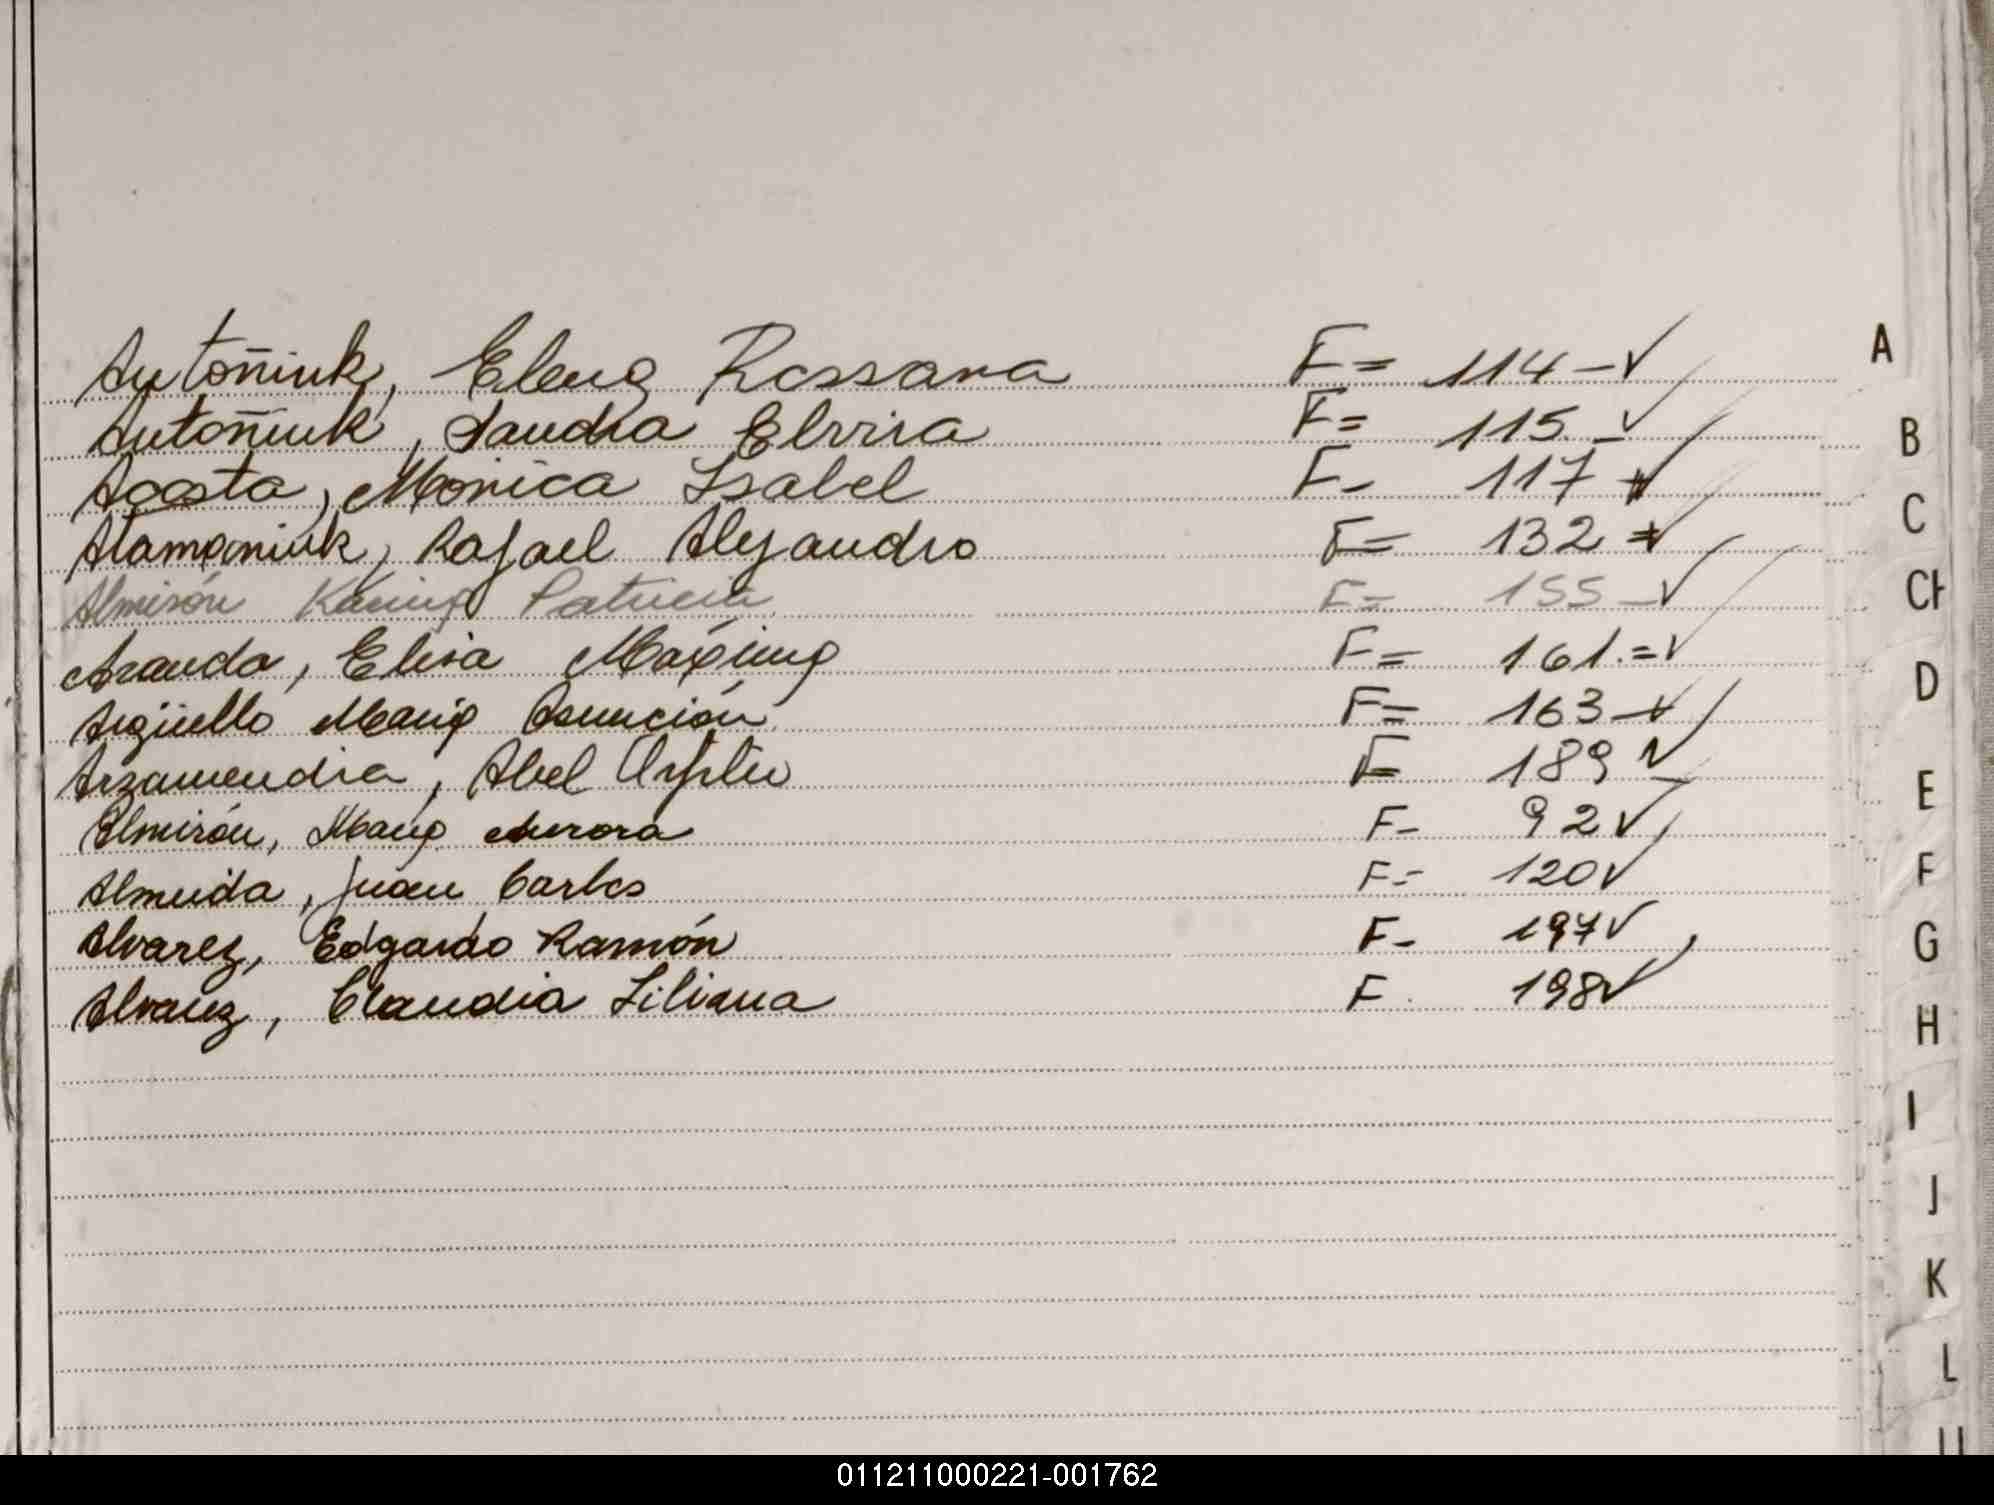 Antoñiuk, Elena Rossana F= 114 - ✓
Antoñiuk, Sandra Elvira F= 115 - ✓
Acosta, Monica Isabel F- 117 ✓
Atamaniuk, Rafael Alejandro F= 132 = ✓
Almirón Karina Patricia F= 155 - ✓
Aranda, Elisa Máxima F= 161. = ✓
Argüello Maria Asunción F= 163 - ✓
Arzamendia, Abel F= 189 ✓
Almirón, Maria Aurora F- 92 ✓
Almeida, Juan Carlos F= 120 ✓
Alvarez, Edgardo Ramón F- 197 ✓
Alvarez, Claudia Liliana F. 198 ✓
A
B
C
CH
D
E
F
G
H
I
J
K
L
011211000221-001762